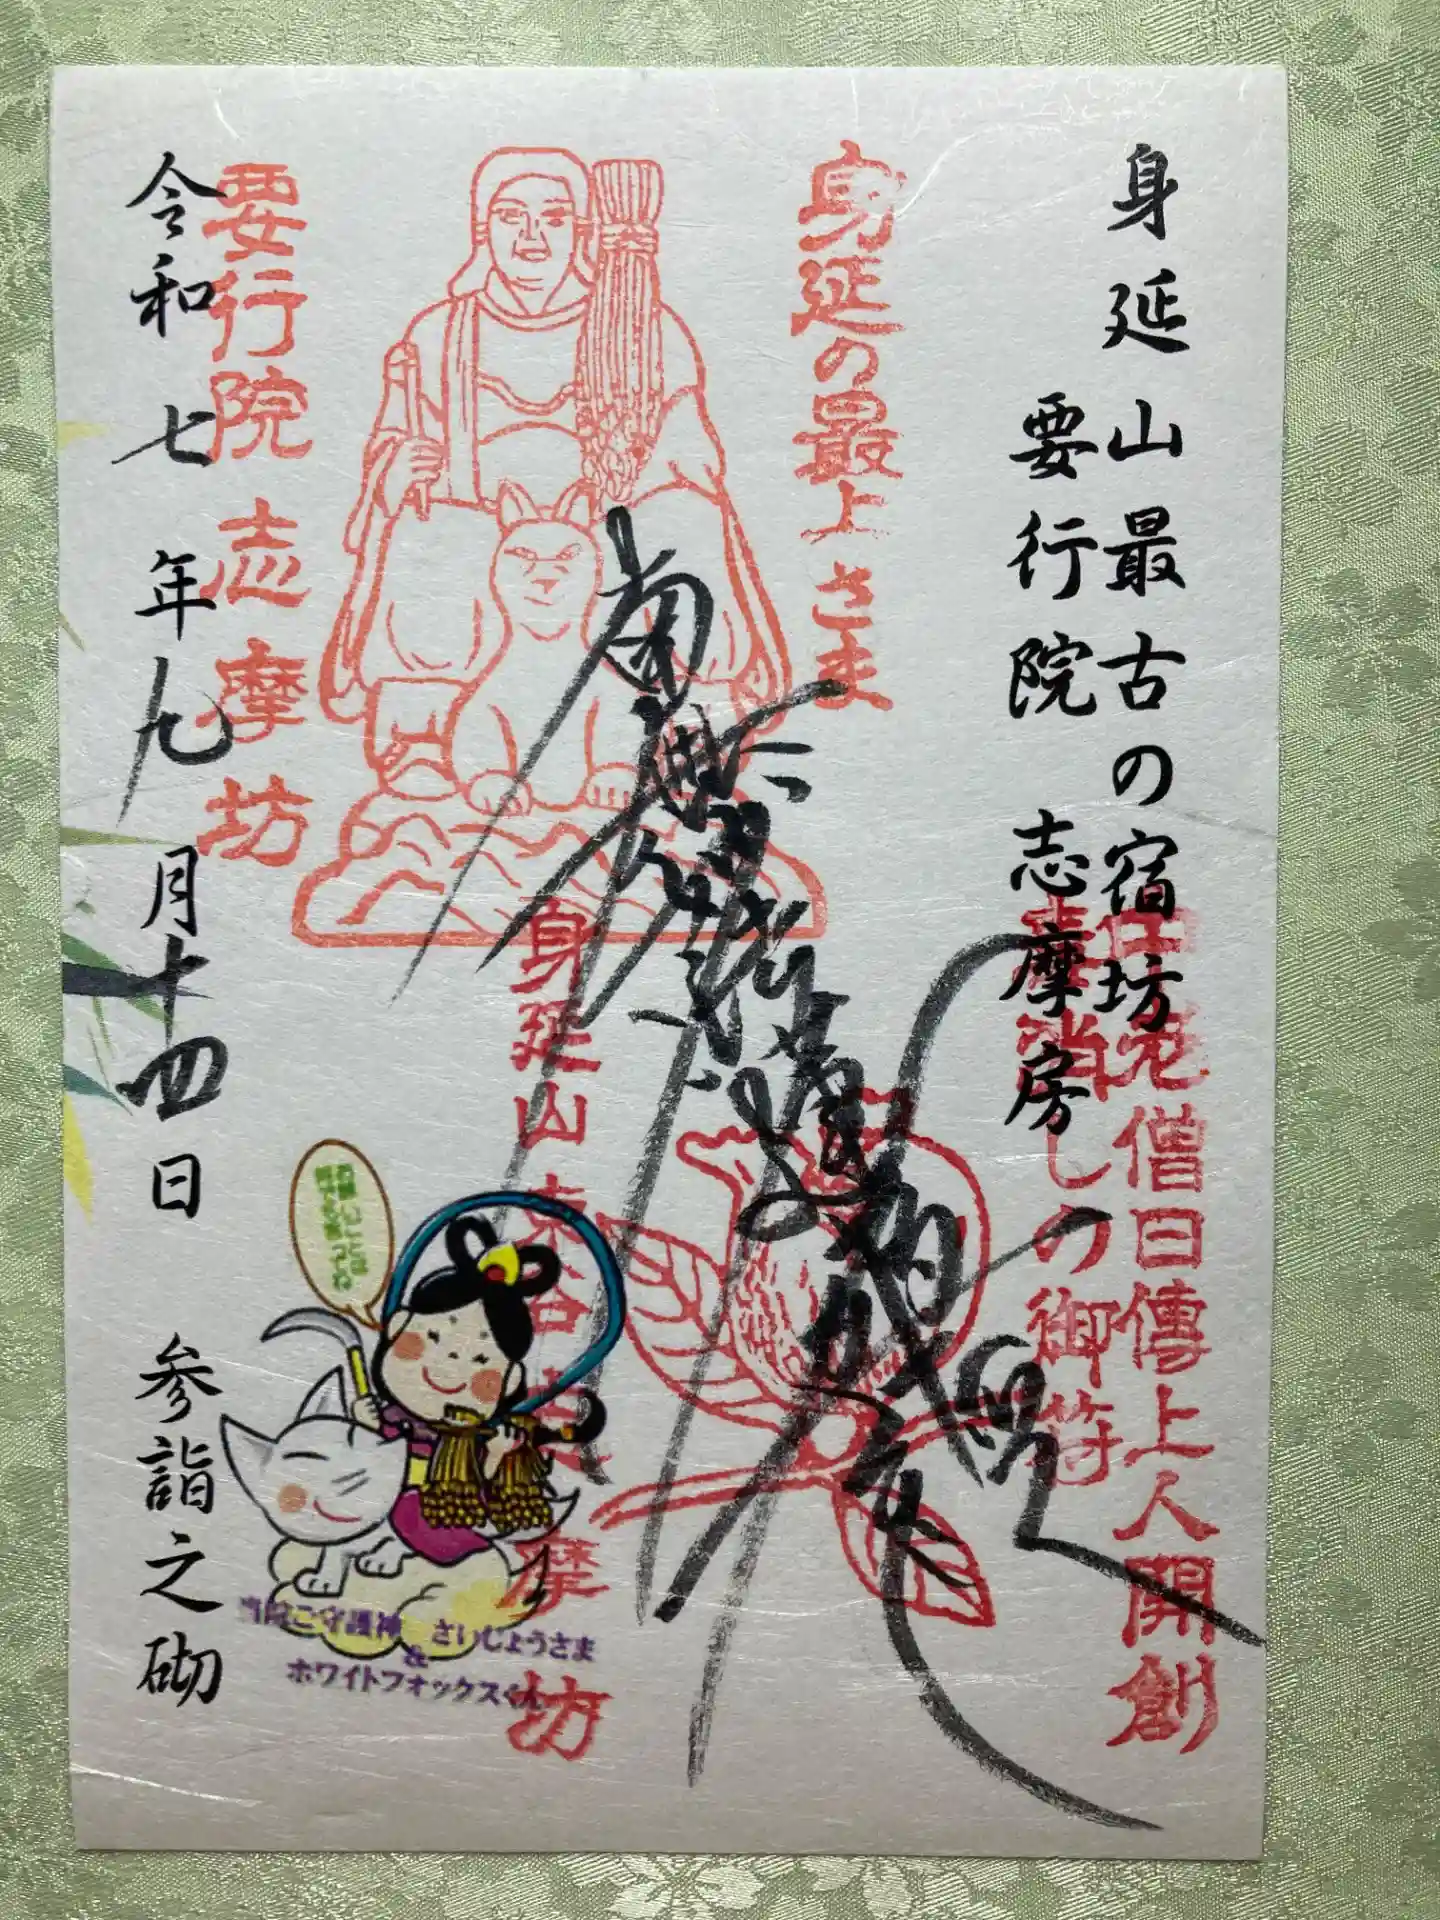 身延山最古の宿坊
要行院 志摩房
中老僧日傳上人開創
毒消しの御符
身延の最上さま
南無妙法蓮華経
身延山東谷志摩坊
要行院志摩坊
令和七年九月十四日 参詣之砌
当院ご守護神 さいじょうさま
&
ホワイトフォックスくん